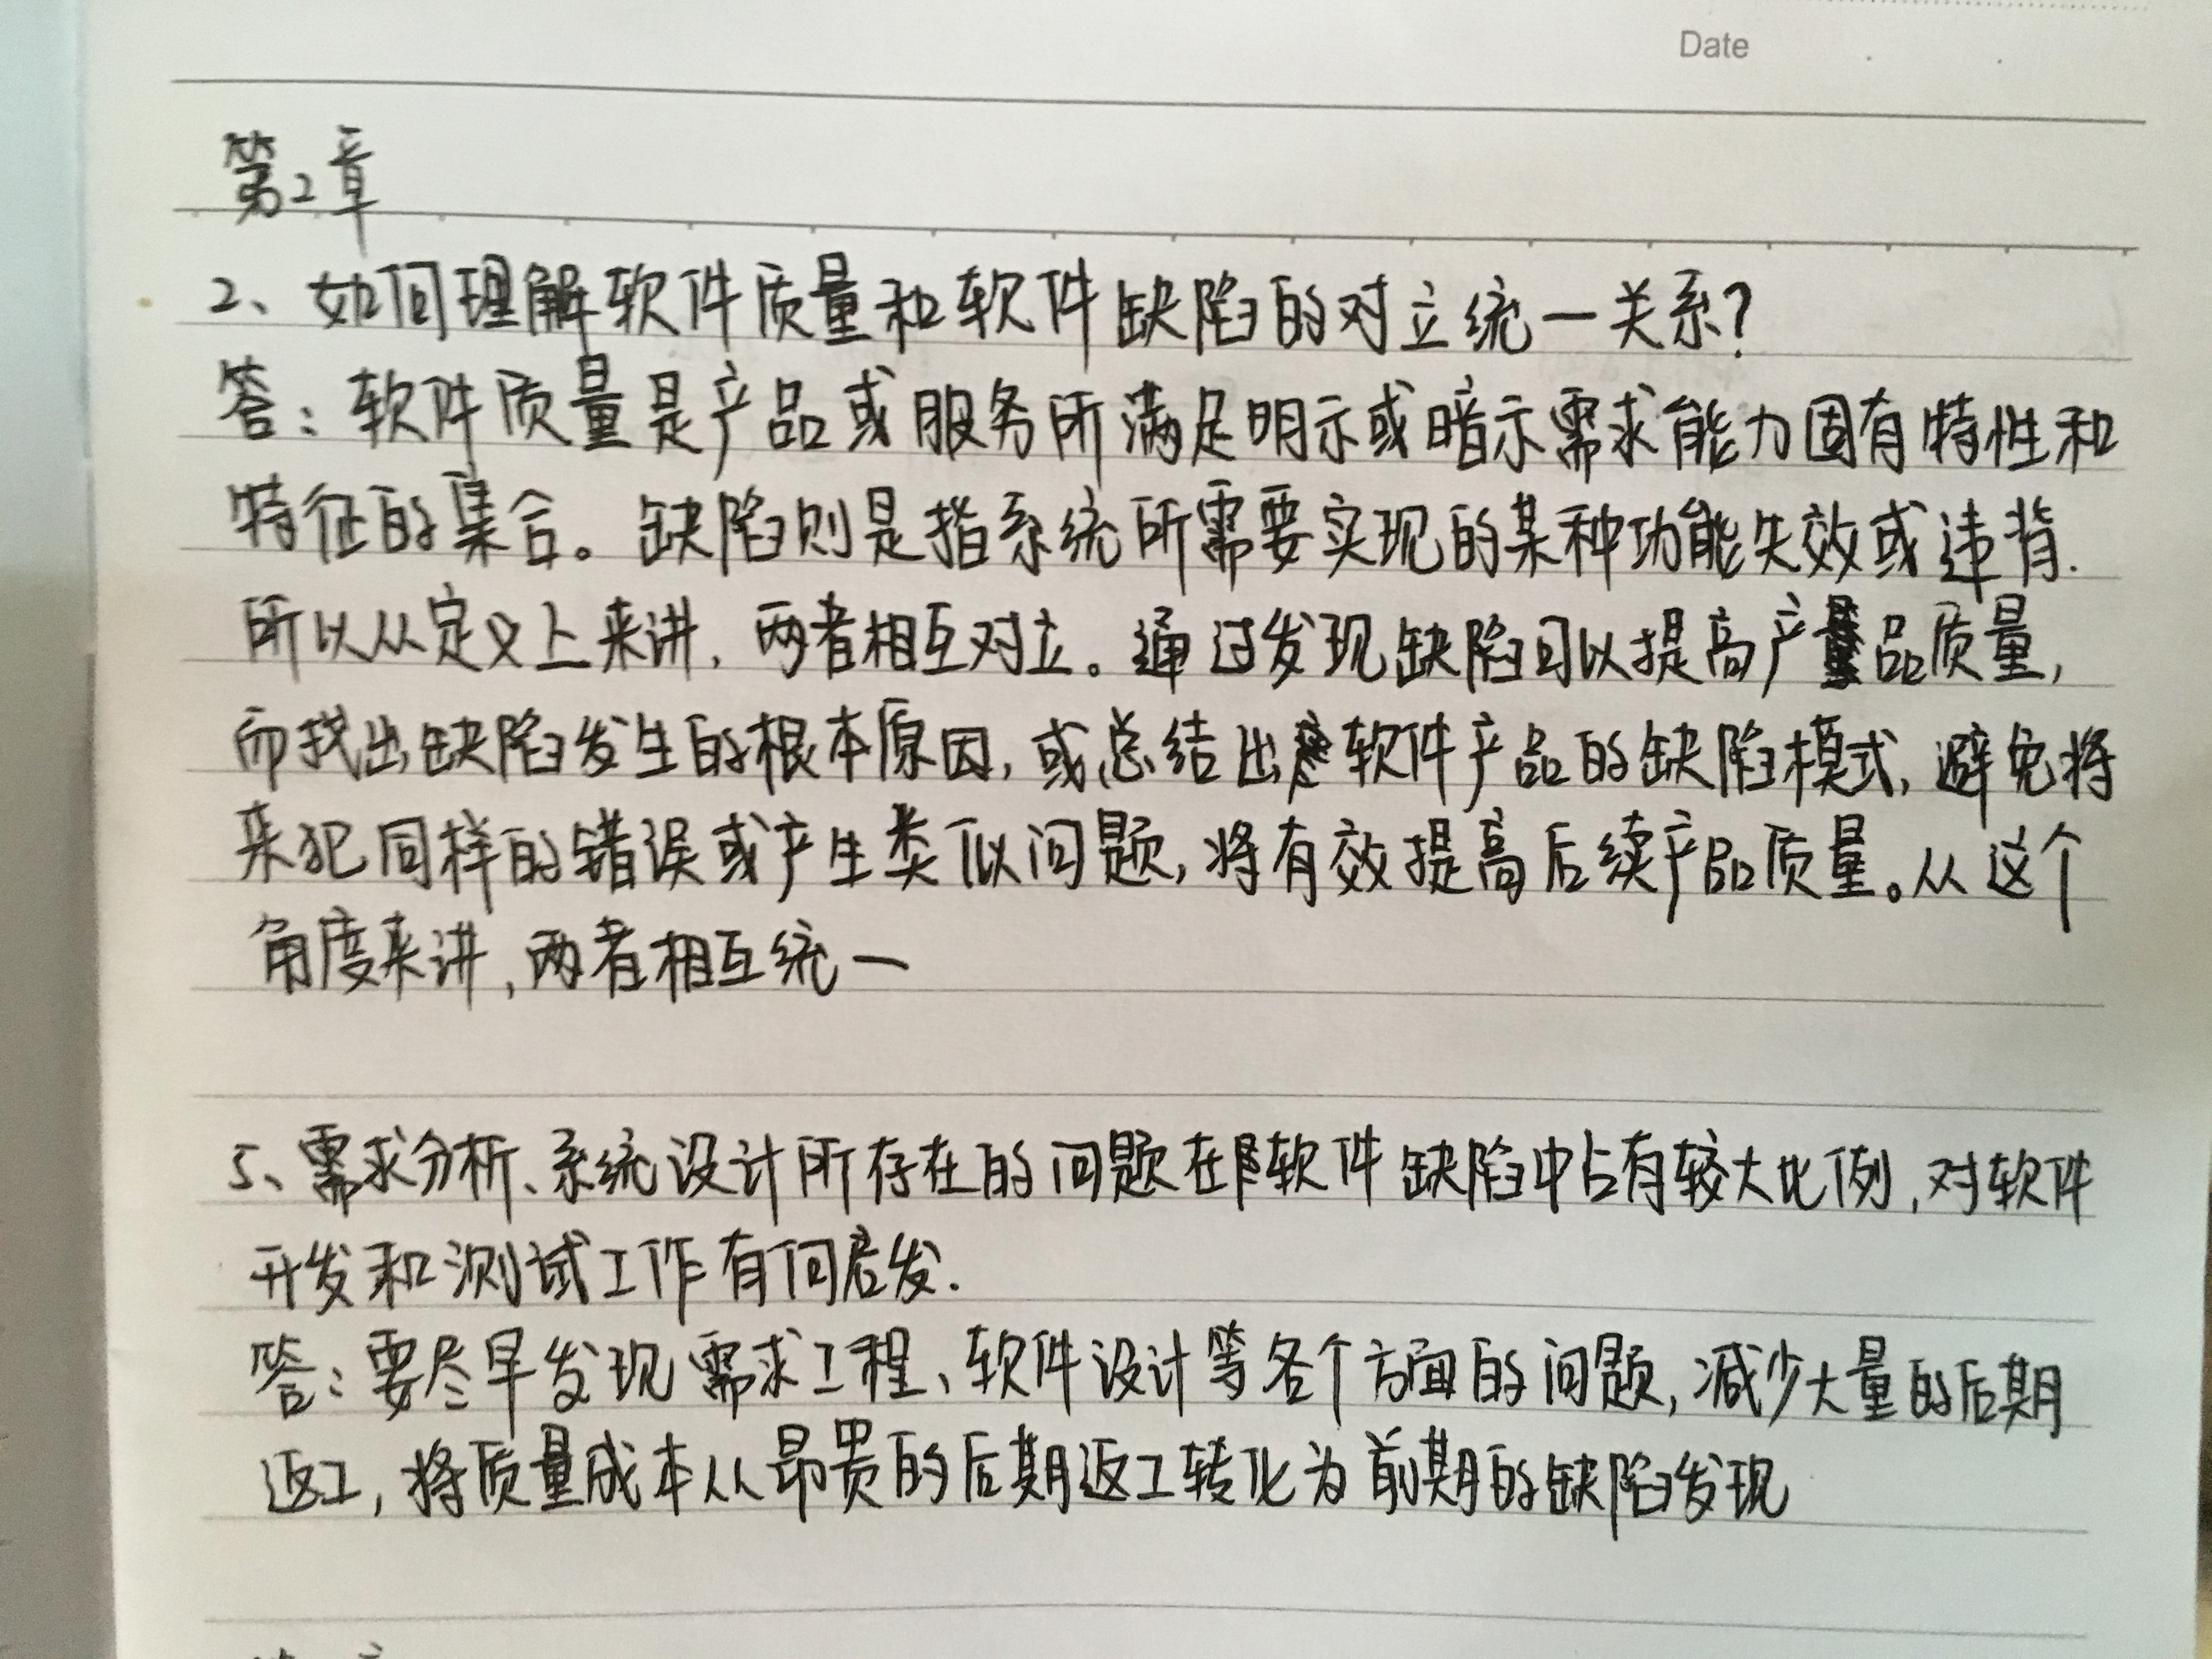 Date
第2章
2、如何理解软件质量和软件缺陷的对立统一关系?
答：软件质量是产品或服务所满足明示或暗示需求能力固有特性和
特征的集合。缺陷则是指系统所需要实现的某种功能失效或违背.
所以从定义上来讲,两者相互对立。通过发现缺陷可以提高产品质量,
而找出缺陷发生的根本原因,或总结出软件产品的缺陷模式,避免将
来犯同样的错误或产生类似问题,将有效提高后续产品质量。从这个
角度来讲,两者相互统一
5、需求分析、系统设计所存在的问题在软件缺陷中占有较大比例,对软件
开发和测试工作有何启发.
答：要尽早发现需求工程、软件设计等各个方面的问题,减少大量的后期
返工,将质量成本从昂贵的后期返工转化为前期的缺陷发现